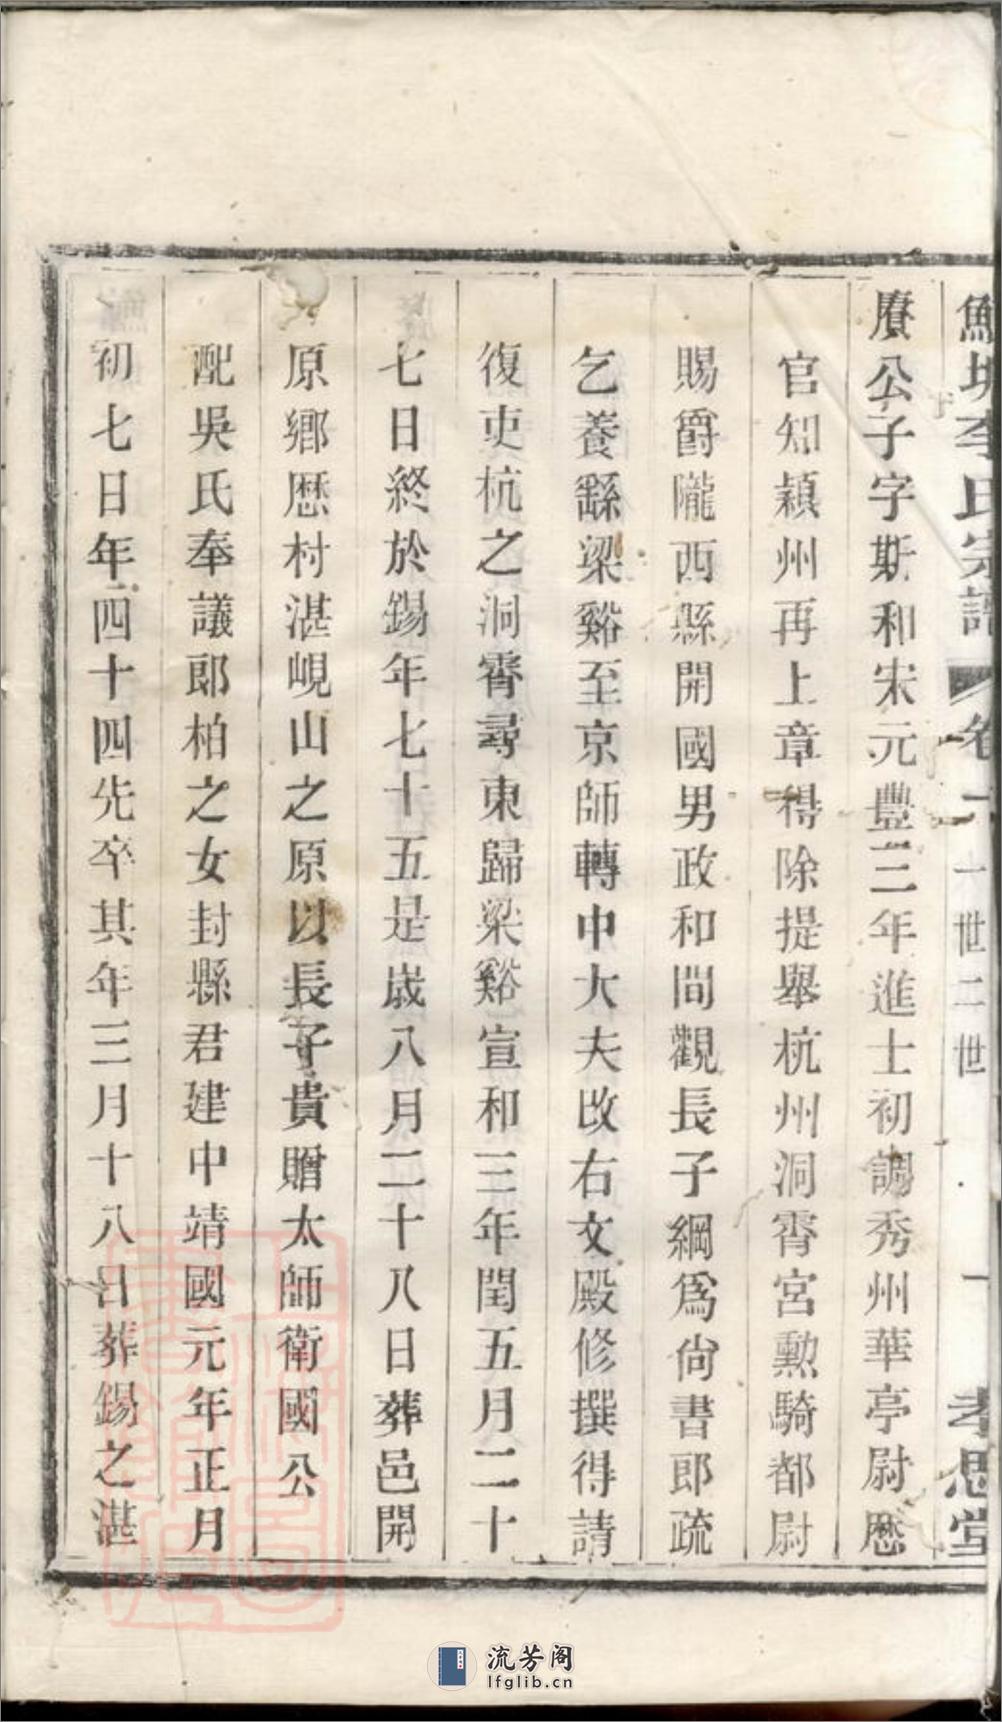 鮑墟李氏宗譜 卷二 一世二世 一 孝思堂
賡公子字斯和宋元豐三年進士初調秀州華亭尉歷
官知潁州再上章得除提舉杭州洞霄宮勲騎都尉
賜爵隴西縣開國男政和間觀長子綱爲尙書郎疏
乞養繇梁谿至京師轉中大夫改右文殿修撰得請
復吏杭之洞霄尋東歸梁谿宣和三年閏五月二十
七日終於錫年七十五是歲八月二十八日葬邑開
原鄉歷村湛峴山之原以長子貴贈太師衛國公
配吳氏奉議郎柏之女封縣君建中靖國元年正月
初七日年四十四先卒其年三月十八日葬錫之湛
流芳阁
lfglib.cn